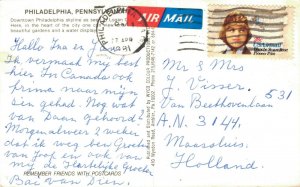 PHILADELPHIA, PENNSYLVANIA
Downtown Philadelphia skyline as seen from
Here, in the heart of the city one can
beautiful gardens and a water display
AIR MAIL
PHILADELPHIA
27 APR
1981
Hallo Ina en J
Ik vermaak mij best
hier. In Canada ook
Prima naar mijn
zin gehad. Nog wat
van Daan gehoord?
Morgen alweer 2 weken
dat ik weg ben Groeten
van Joop en ook van
mij de Hartelijke Groeten
Bac van Dien
REMEMBER FRIENDS WITH POSTCARDS
Mr & Mrs
J. Visser.
Van Beethovenlaan 531
A.N. 3144,
Maassluis
Holland.